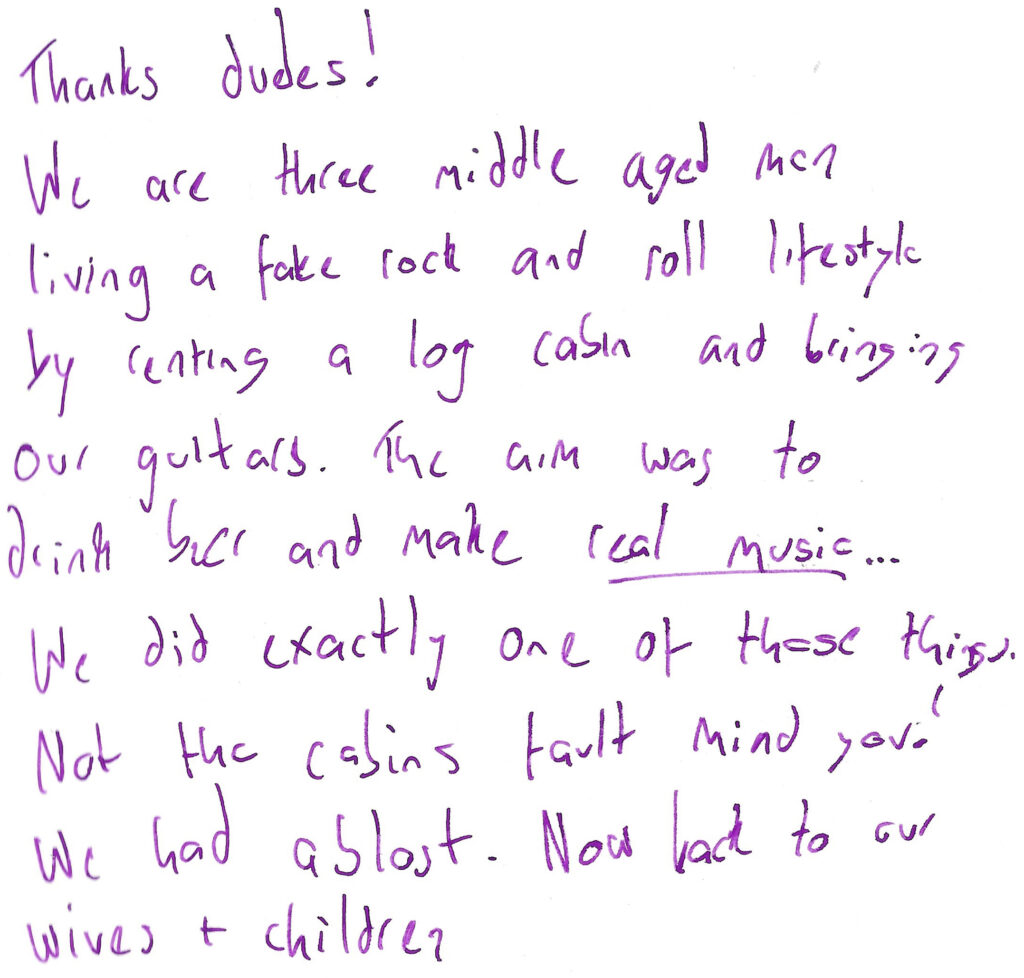 Thanks dudes!
We are three middle aged men
living a fake rock and roll lifestyle
by renting a log cabin and bringing
our guitars. The aim was to
drink beer and make real music...
We did exactly one of those things.
Not the cabins fault mind you!
We had a blast. Now back to our
wives + children